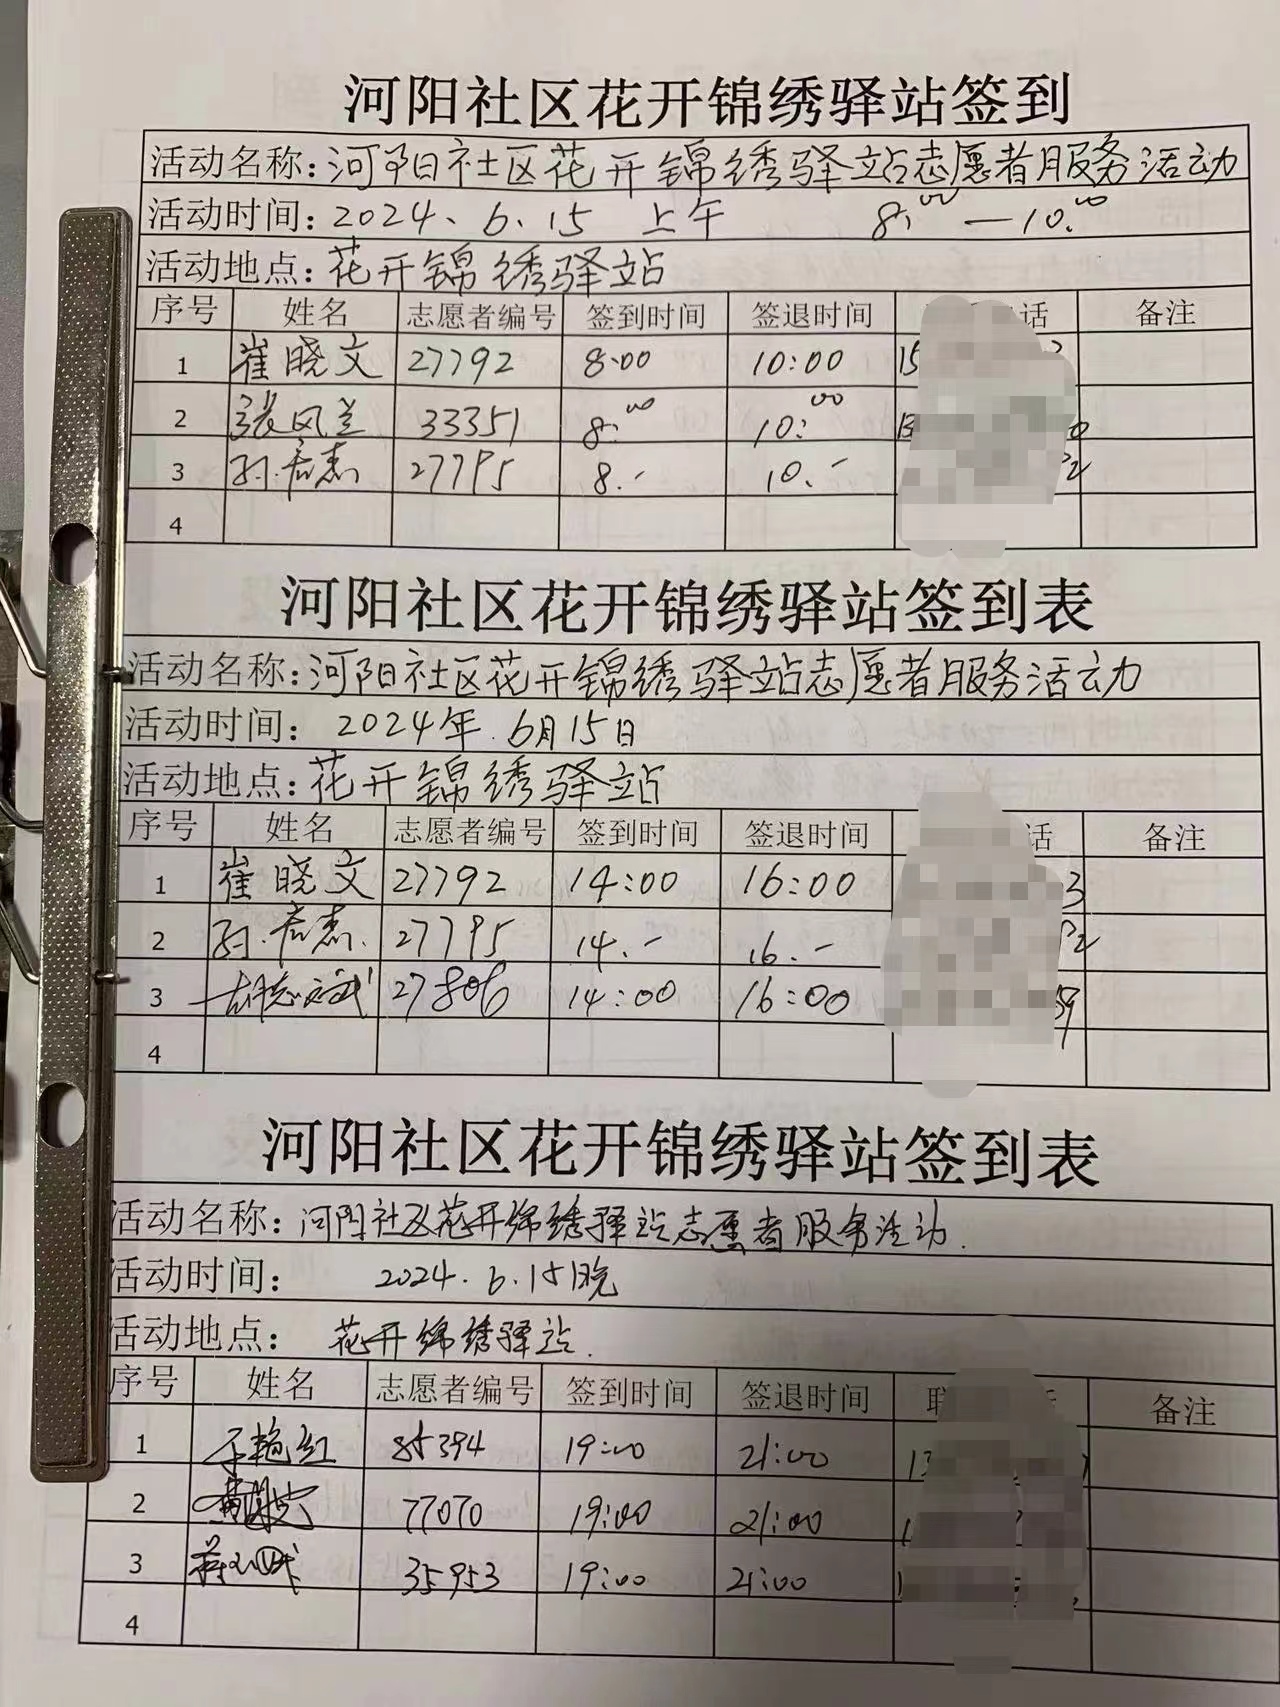 河阳社区花开锦绣驿站签到
活动名称：河阳社区花开锦绣驿站志愿者服务活动
活动时间：2024、6、15 上午 8:00 — 10:00
活动地点：花开锦绣驿站
序号 姓名 志愿者编号 签到时间 签退时间 话 备注
1 崔晓文 27792 8:00 10:00 15
2 张风兰 33351 8:00 10:00
3 27795 8.- 10.-
4
河阳社区花开锦绣驿站签到表
活动名称：河阳社区花开锦绣驿站志愿者服务活动
活动时间：2024年.6月15日
活动地点：花开锦绣驿站
序号 姓名 志愿者编号 签到时间 签退时间 话 备注
1 崔晓文 27792 14:00 16:00 3
2 27795 14.- 16.-
3 胡志斌 27806 14:00 16:00 59
4
河阳社区花开锦绣驿站签到表
活动名称：河阳社区花开锦绣驿站志愿者服务活动.
活动时间：2024.6.15晚
活动地点：花开锦绣驿站.
序号 姓名 志愿者编号 签到时间 签退时间 联 备注
1 于艳红 85394 19:00 21:00 13
2 77070 19:00 21:00 1
3 35953 19:00 21:00 1
4